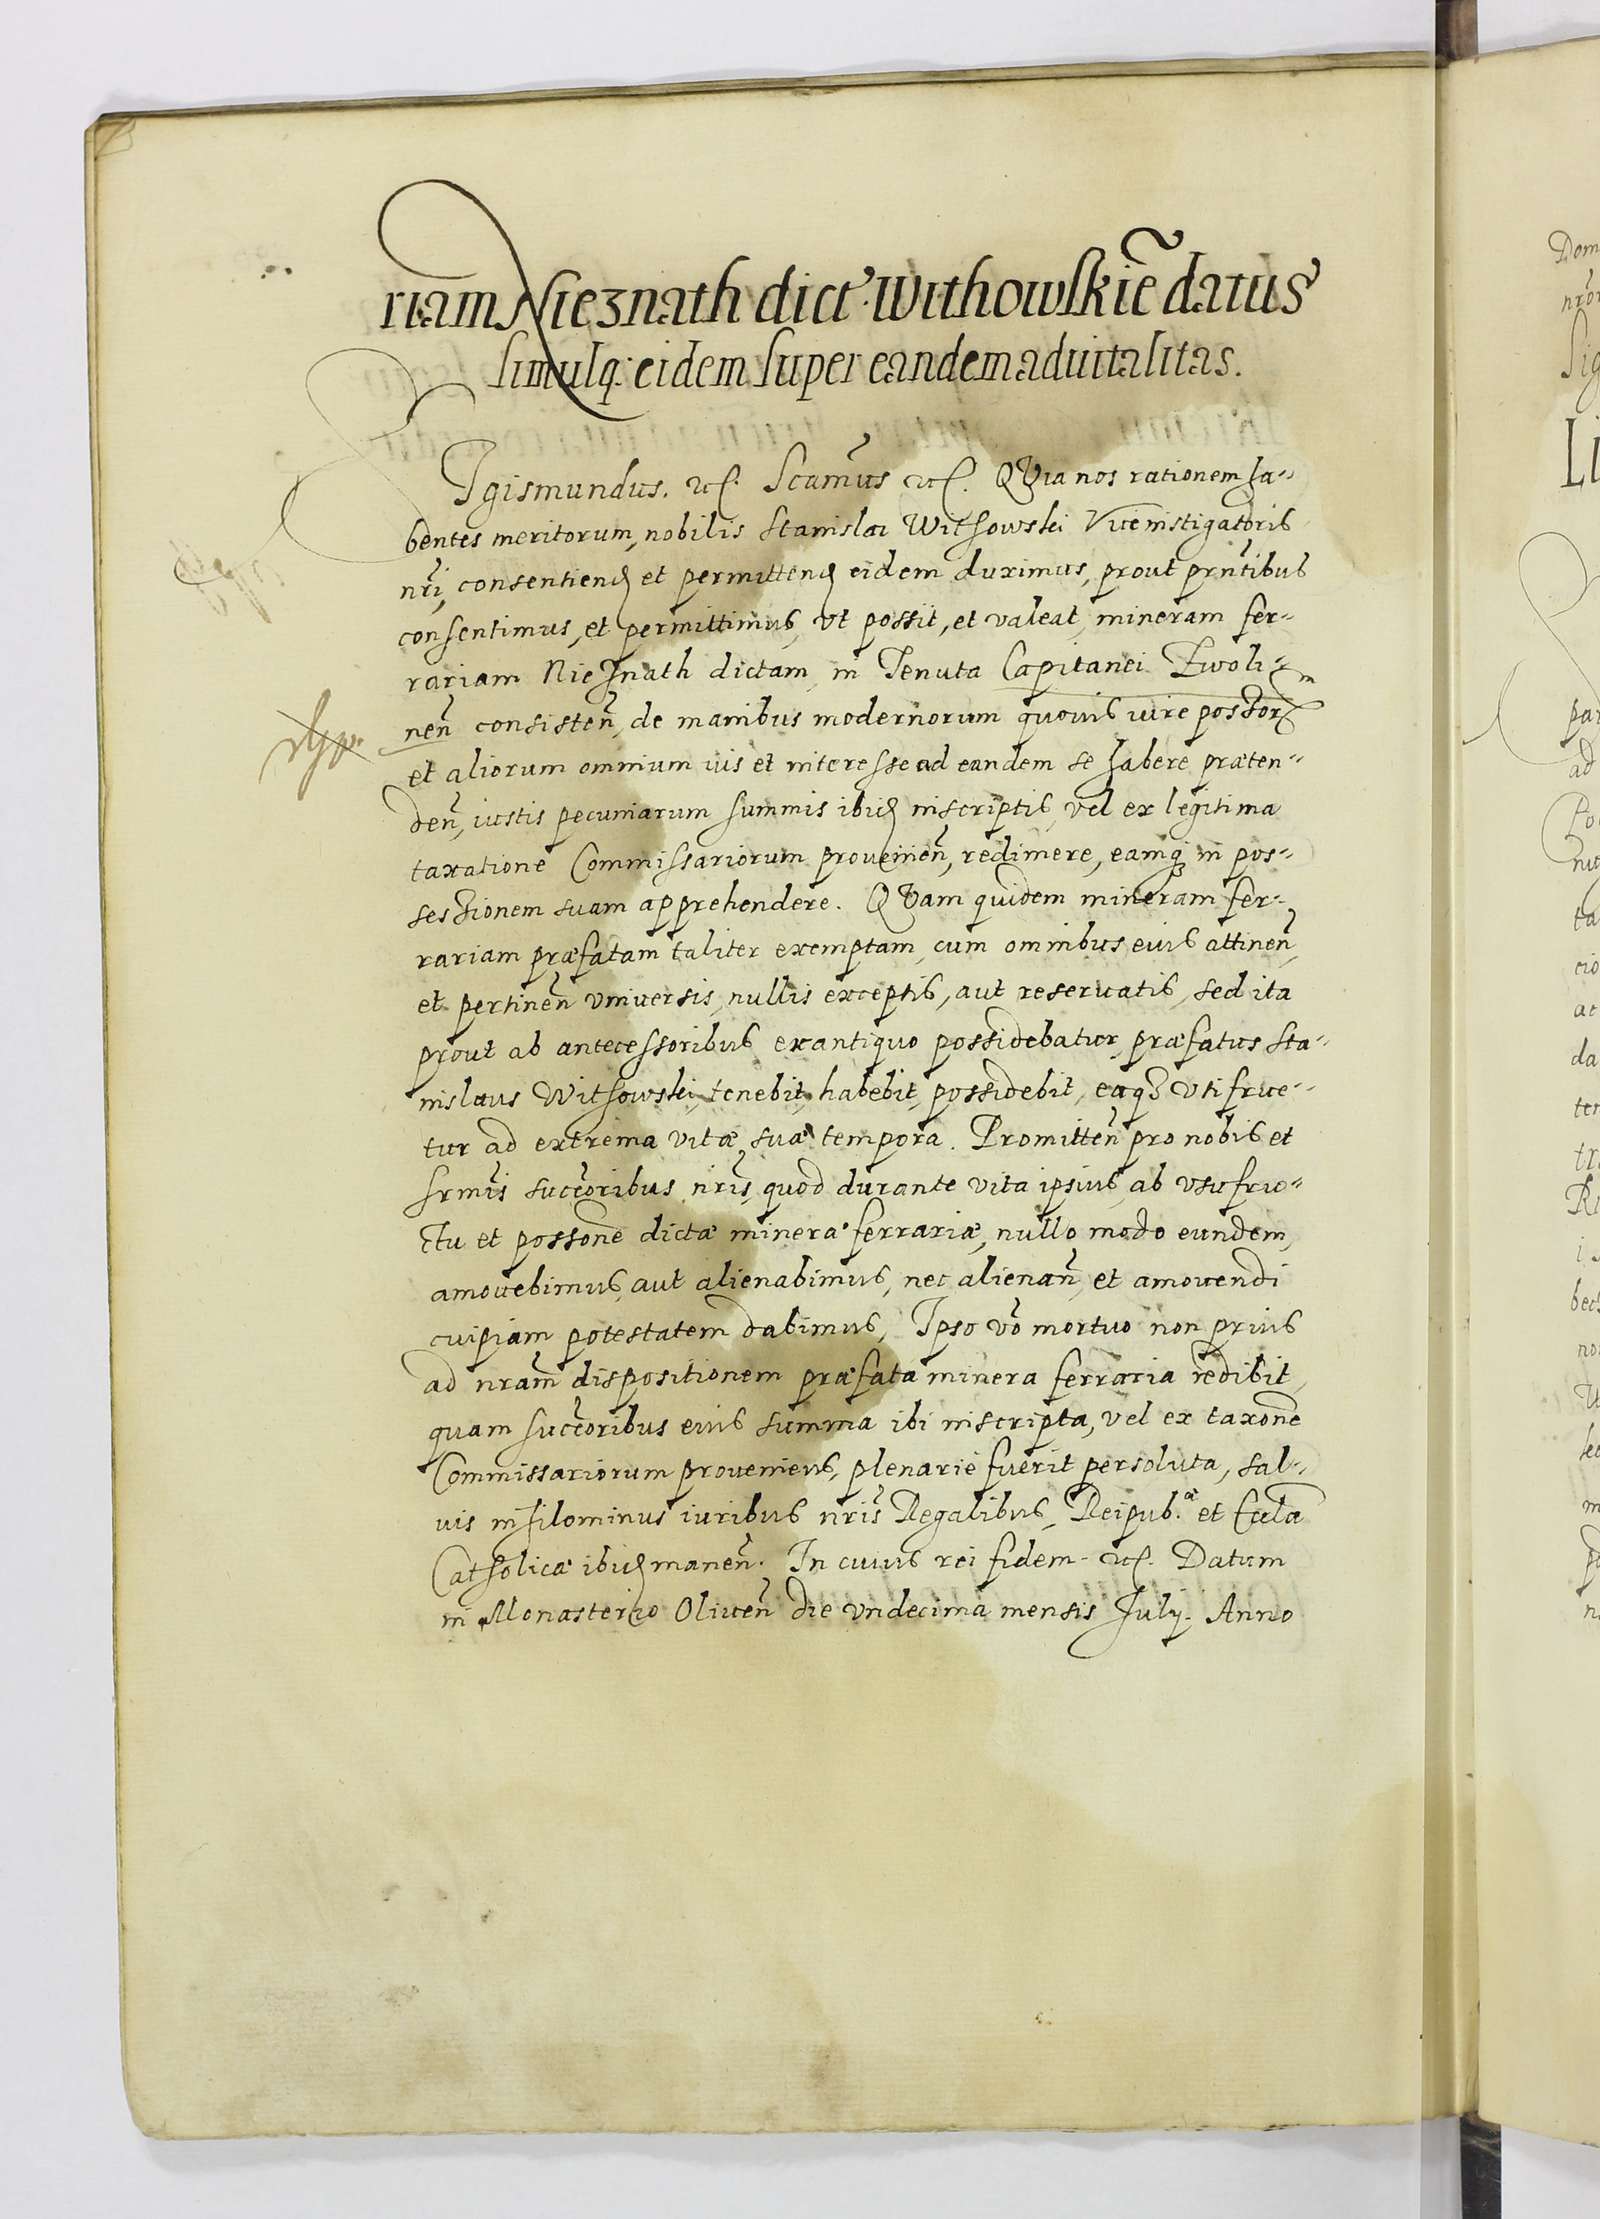 riam Nieznath dict. Withowskie͂ datus
simulq; eidem super eandem aduitalitas.
Sigismundus. etc. Scimus etc. QVia nos rationem ha-
bentes meritorum, nobilis Stanislai Withowski Viceinstigatoris
nr̃i, consentiend et permittend eidem duximus, prout pr̃ntibus
consentimus, et permittimus, vt possit, et valeat, mineram fer-
rariam Nieznath dictam, in Tenuta Capitanei Zwoli-
nen̄ consisten̄, de manibus modernorum quouis iure possor
et aliorum omnium ius et interesse ad eandem se habere præten-
den̄, iustis pecuniarum summis ibid inscriptis, vel ex legitima
taxatione Commissariorum prouenien̄, redimere, eamq; in pos-
sessionem suam apprehendere. QVam quidem mineram fer-
rariam præfatam taliter exemptam, cum omnibus eius attinen̄,
et pertinen̄ vniuersis, nullis exceptis, aut reseruatis, sed ita
prout ab antecessoribus ex antiquo possidebatur, præfatus Sta-
nislaus Withowski, tenebit, habebit, possidebit, eaq; vti frue-
tur ad extrema vitæ suæ tempora. Promitten̄ pro nobis et
Srmis succoribus nr̃is, quod durante vita ipsius, ab vsufru-
ctu et possone dictæ mineræ ferrariæ, nullo modo eundem,
amouebimus, aut alienabimus, nec alienan̄, et amouendi
cuipiam potestatem dabimus, Ipso vo mortuo non prius
ad nram̃ dispositionem præfata minera ferraria redibit,
quam succoribus eius summa ibi inscripta, vel ex taxone
Commissariorum proueniens, plenarie fuerit persoluta, sal-
uis nihilominus iuribus nr̃is Regalibus, Reipub. et Eccla
Catholicæ ibid manen̄. In cuius rei fidem etc. Datum
in Monasterio Oliuen̄ die vndecima mensis Julij. Anno